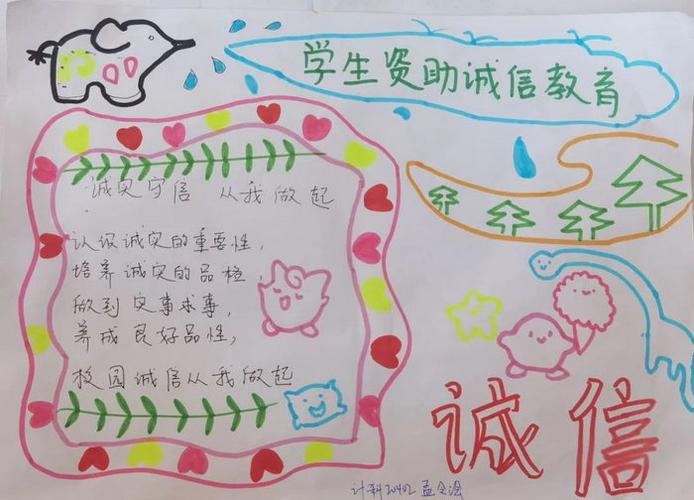 学生资助诚信教育
诚实守信 从我做起
认识诚实的重要性，
培养诚实的品格，
做到实事求事，
养成良好品性，
校园诚信从我做起
诚信
计科2402 孟